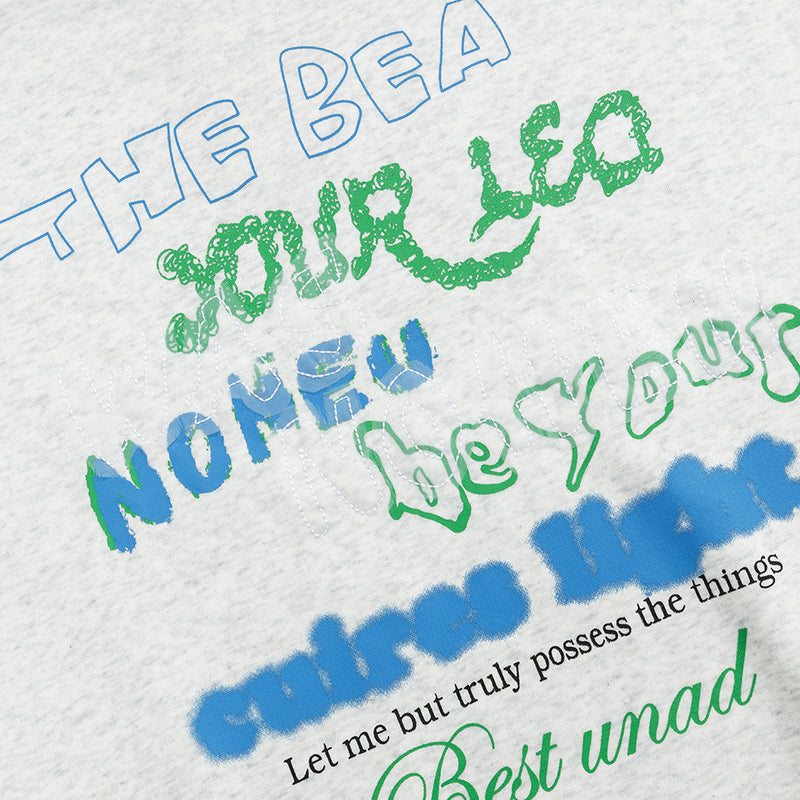 THE BEA
YOUR LEO
NOMEU
be your
cuires light
Let me but truly possess the things
Best unad